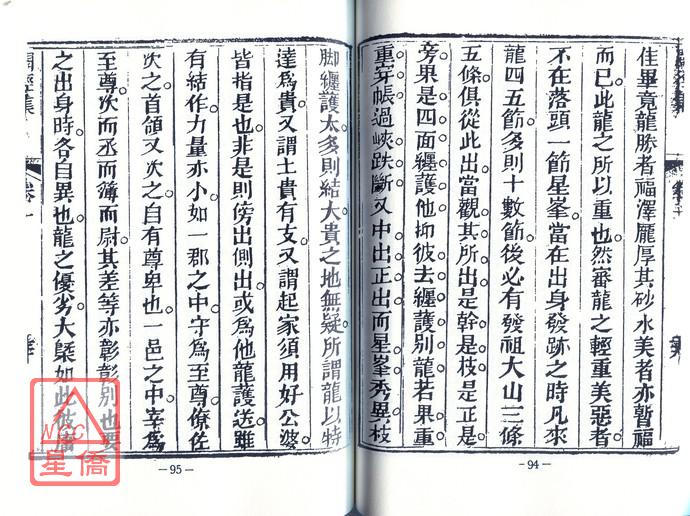 佳畢竟龍勝者福澤厖厚其砂水美者亦暫福
而已此龍之所以重也然審龍之輕重美惡者
不在落頭一節星峯當在出身發跡之時凡來
龍四五節多則十數節後必有發祖大山三條
五條俱從此出當觀其所出是幹是枝是正是
旁果是四面纏護他抑彼去纏護別龍若果重
重芽帳過峽跌斷又中出正出而星峯秀異枝
脚纏護太多則結大貴之地無疑所謂龍以特
達為貴又謂土貴有支又謂起家須用好公婆
皆指是也非是則傍出側出或為他龍護送雖
有結作力量亦小如一郡之中守為至尊僚佐
次之首領又次之自有尊卑也一邑之中宰為
至尊次而丞而簿而尉其差等亦彰彰別也要
之出身時各自異也龍之優劣大槩如此
卷一
—94—
—95—
NCC
星僑